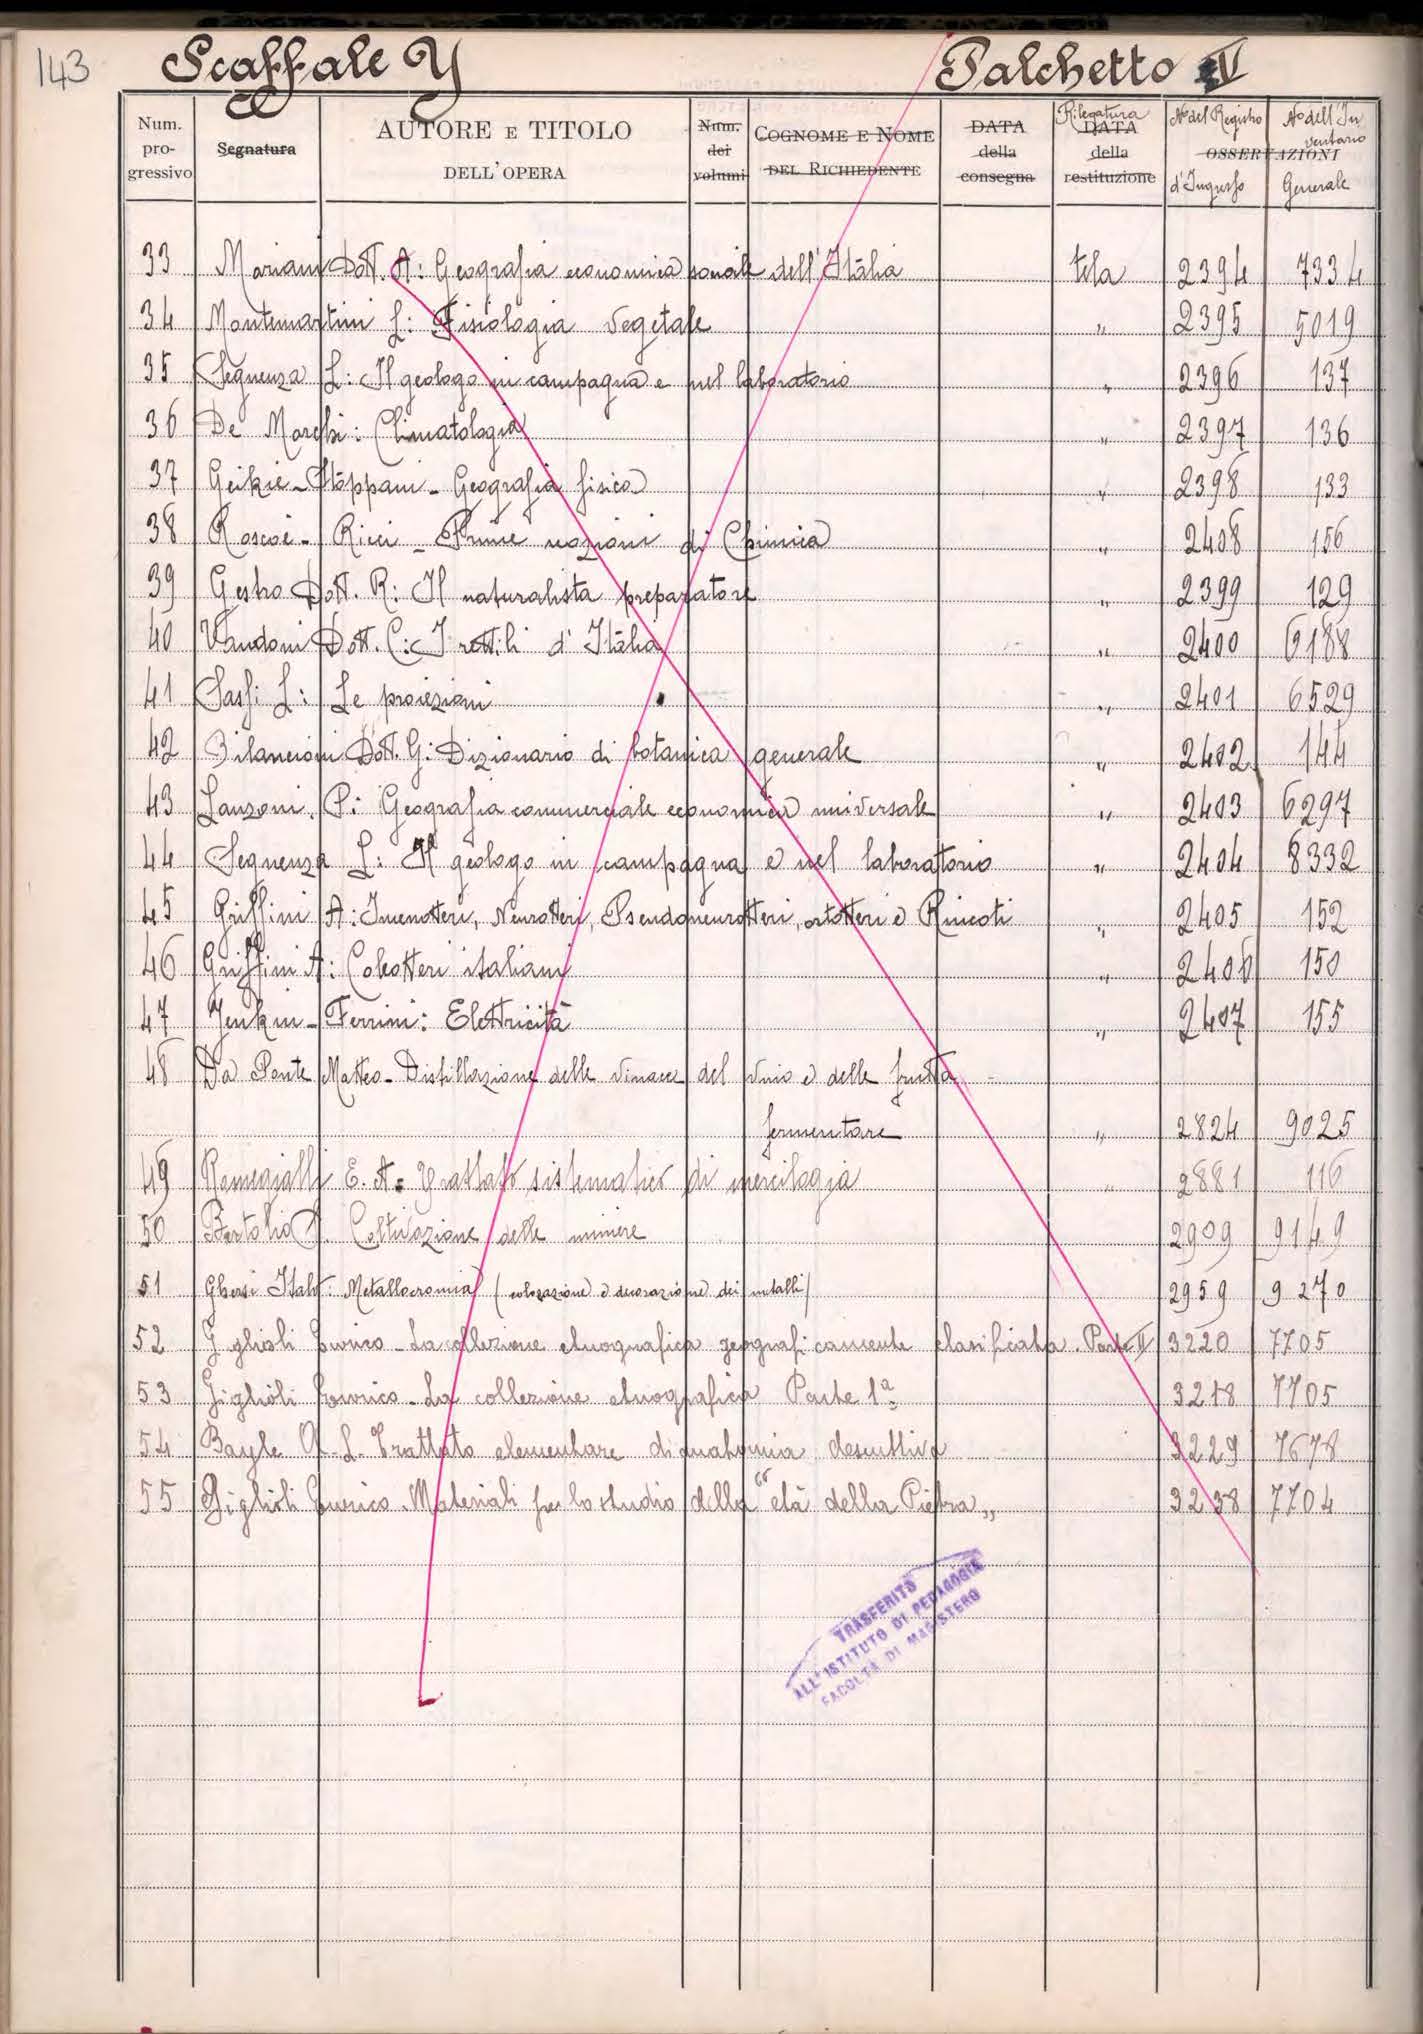 143 Scaffale Y Palchetto V
Num. progressivo Segnatura AUTORE E TITOLO DELL'OPERA Num. dei volumi COGNOME E NOME DEL RICHIEDENTE DATA della consegna Rilegatura DATA della restituzione No del Registro d'Ingresso OSSERVAZIONI No dell'Inventario Generale
33 Mariani Dott. A: Geografia economica sociale dell'Italia tela 2394 7334
34 Montemartini L: Fisiologia vegetale " 2395 5019
35 Seguenza L: Il geologo in campagna e nel laboratorio " 2396 137
36 De Marchi: Climatologia " 2397 136
37 Geikie - Stoppani - Geografia fisica " 2398 133
38 Roscoe - Ricci - Prime nozioni di Chimica " 2408 156
39 Gestro Dott. R: Il naturalista preparatore " 2399 129
40 Vandoni Dott. C: I rettili d'Italia " 2400 6188
41 Sassi L: Le proiezioni " 2401 6529
42 Bilancioni Dott. G: Dizionario di botanica generale " 2402 144
43 Lanzoni. P: Geografia commerciale economica universale " 2403 6297
44 Seguenza L: Il geologo in campagna e nel laboratorio " 2404 8332
45 Griffini A: Imenotteri, Neurotteri, Pseudoneurotteri, ortotteri e Rincoti " 2405 152
46 Griffini A: Coleotteri italiani " 2406 150
47 Jenkin - Ferrini: Elettricità " 2407 155
48 Da Ponte Matteo - Distillazione delle vinacce del vino e delle frutta
fermentare " 2824 9025
49 E. A. Trattato sistematico di mercilogia " 2881 116
50 Bertolio S. Coltivazione delle miniere 2909 9149
51 Ghersi Italo: Metallocromia (colorazione e decorazione dei metalli) 2959 9270
52 Giglioli Enrico - La collezione etnografica geograficamente classificata. Parte II 3220 7705
53 Giglioli Enrico - La collezione etnografica Parte 1a 3218 7705
54 Bayle A. L. Trattato elementare di anatomia descrittiva 3229 7678
55 Giglioli Enrico - Materiali per lo studio della "età della Pietra" 3238 7704
TRASFERITO
ALL'ISTITUTO DI PEDAGOGIA
FACOLTÀ DI MAGISTERO